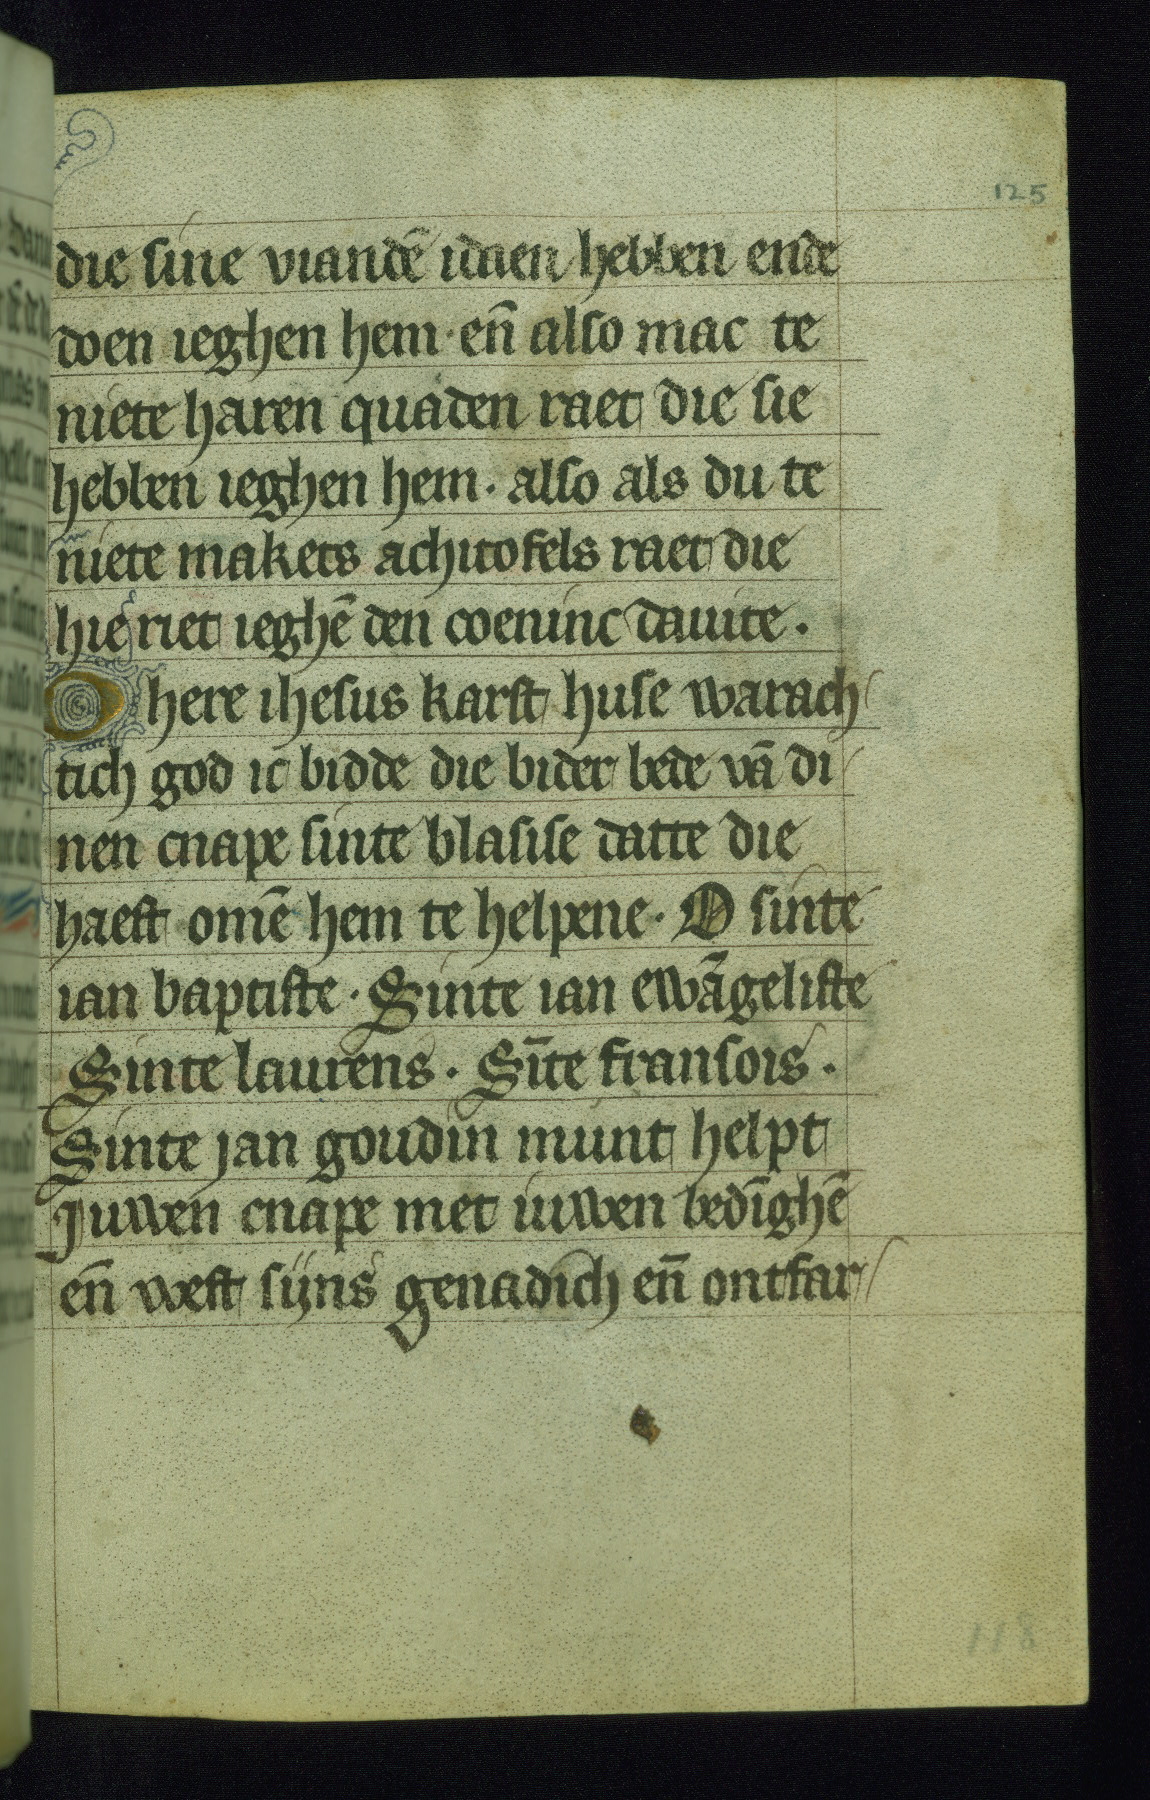 125
die sine viandē idaen hebben ende
doen ieghen hem · eñ also mac te
niete haren quaden raet die sie
hebben ieghen hem · also als du te
niete makets achitofels raet die
hie riet ieghē den coeninc dauite ·
O here ihesus karst huse warach
tich god ic bidde die bider bede vā di
nen cnape sinte blasise datte die
haest omē hem te helpene · O sinte
ian baptiste · Sinte ian ewāgeliste
Sinte laurens · Sīte fransois ·
Sinte jan goudin munt helpt
Juwen cnape met iuwen bedīghē
eñ west sijns genadich eñ ontfar
118